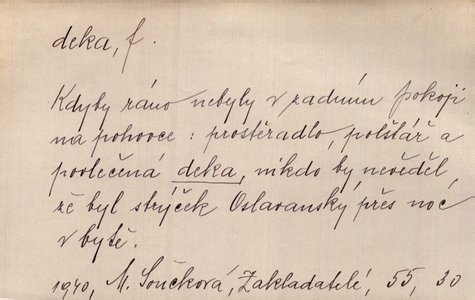 deka, f.
Kdyby ráno nebyly v zadním pokoji
na pohovce: prostěradlo, polštář a
povlečená deka, nikdo by nevěděl,
že byl strýček Oslavanský přes noc
v bytě.
1940, M. Součková, Zakladatelé, 55, 30